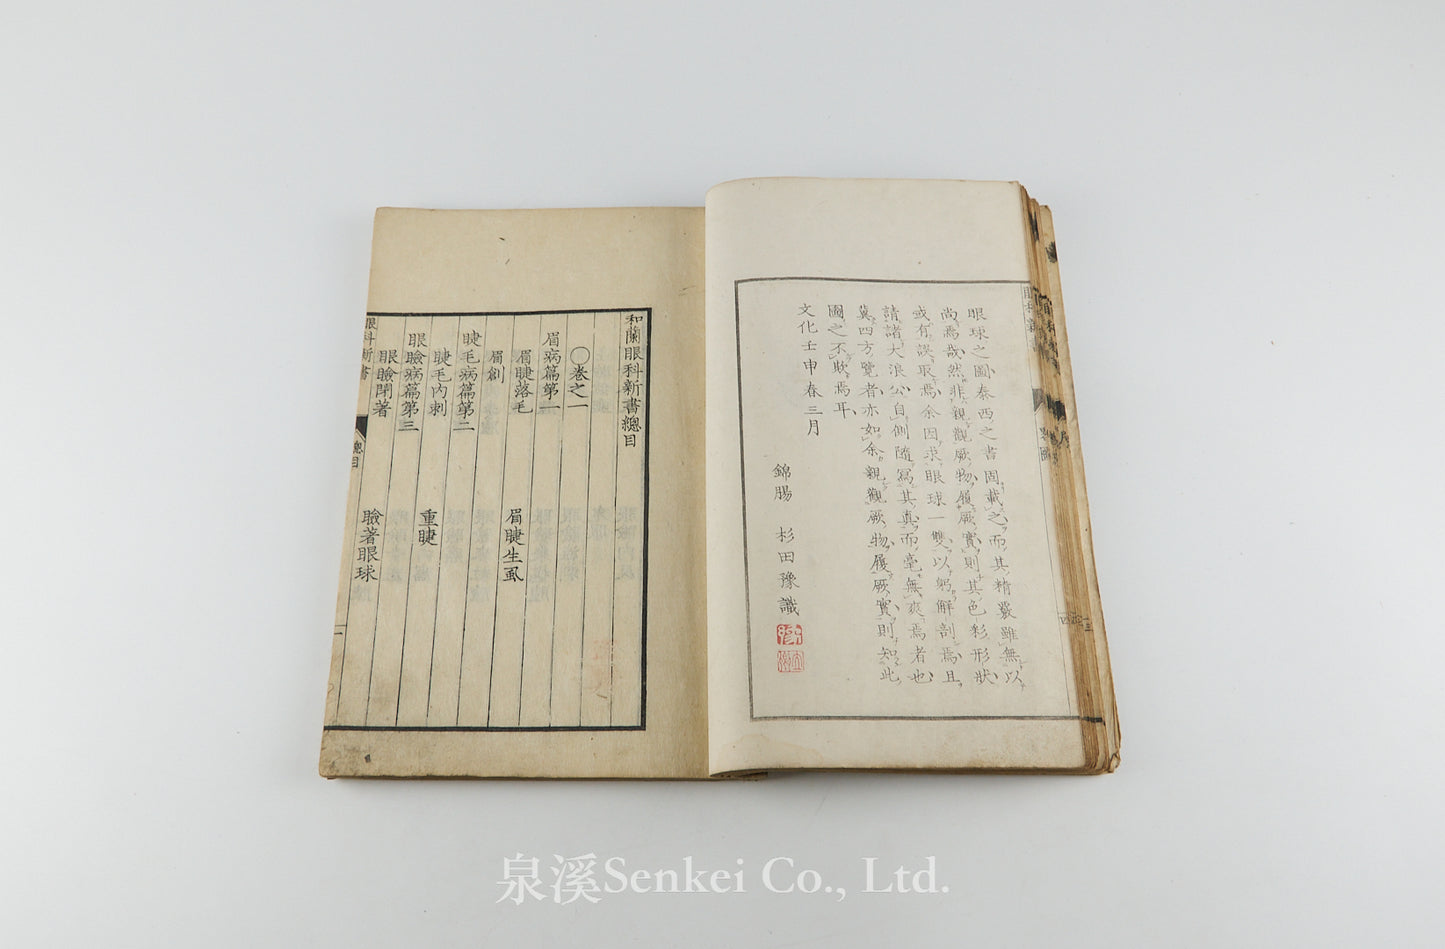 眼球之圖泰西之書固載之而其精嚴雖無以
尚焉哉然非親觀厥物履厥實則其色彩形狀
或有誤取焉余因求眼球一雙以躬解剖焉且
請諸大浪公自側隨寫其真而毫無爽焉者也
冀四方覽者亦如余親觀厥物履厥實則知此
圖之不欺焉耳
文化壬申春三月
錦腸 杉田豫識
和蘭眼科新書總目
〇卷之一
眉病篇第一
眉睫落毛 眉睫生虱
眉創
睫毛病篇第二
睫毛內刺 重睫
眼瞼病篇第三
眼瞼閉著 瞼著眼球
眼科新書
總目
一
泉溪Senkei Co., Ltd.